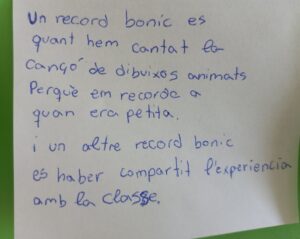 Un record bonic es
quant hem cantat la
cançó de dibuixos animats
Perquè em recorda a
quan era petita.
i un altre record bonic
es haber compartit l'experiencia
amb la classe.